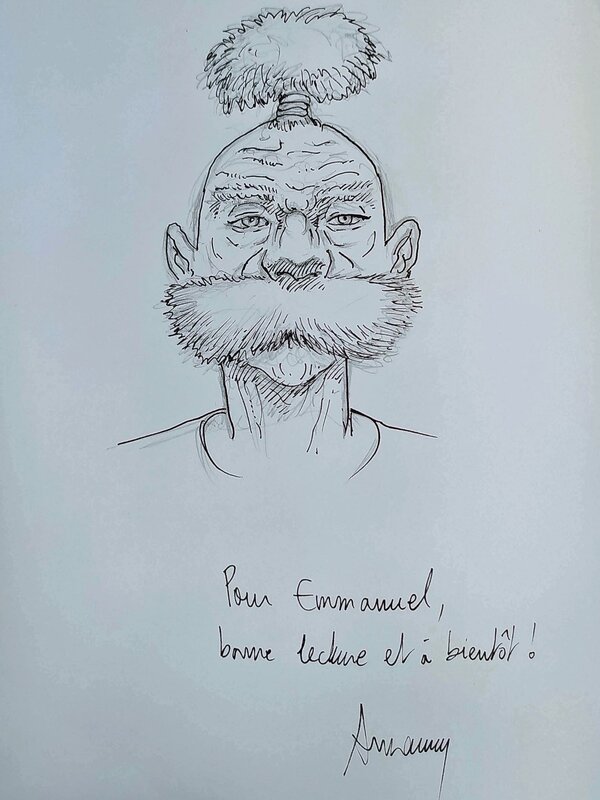 Pour Emmanuel,
bonne lecture et à bientôt !